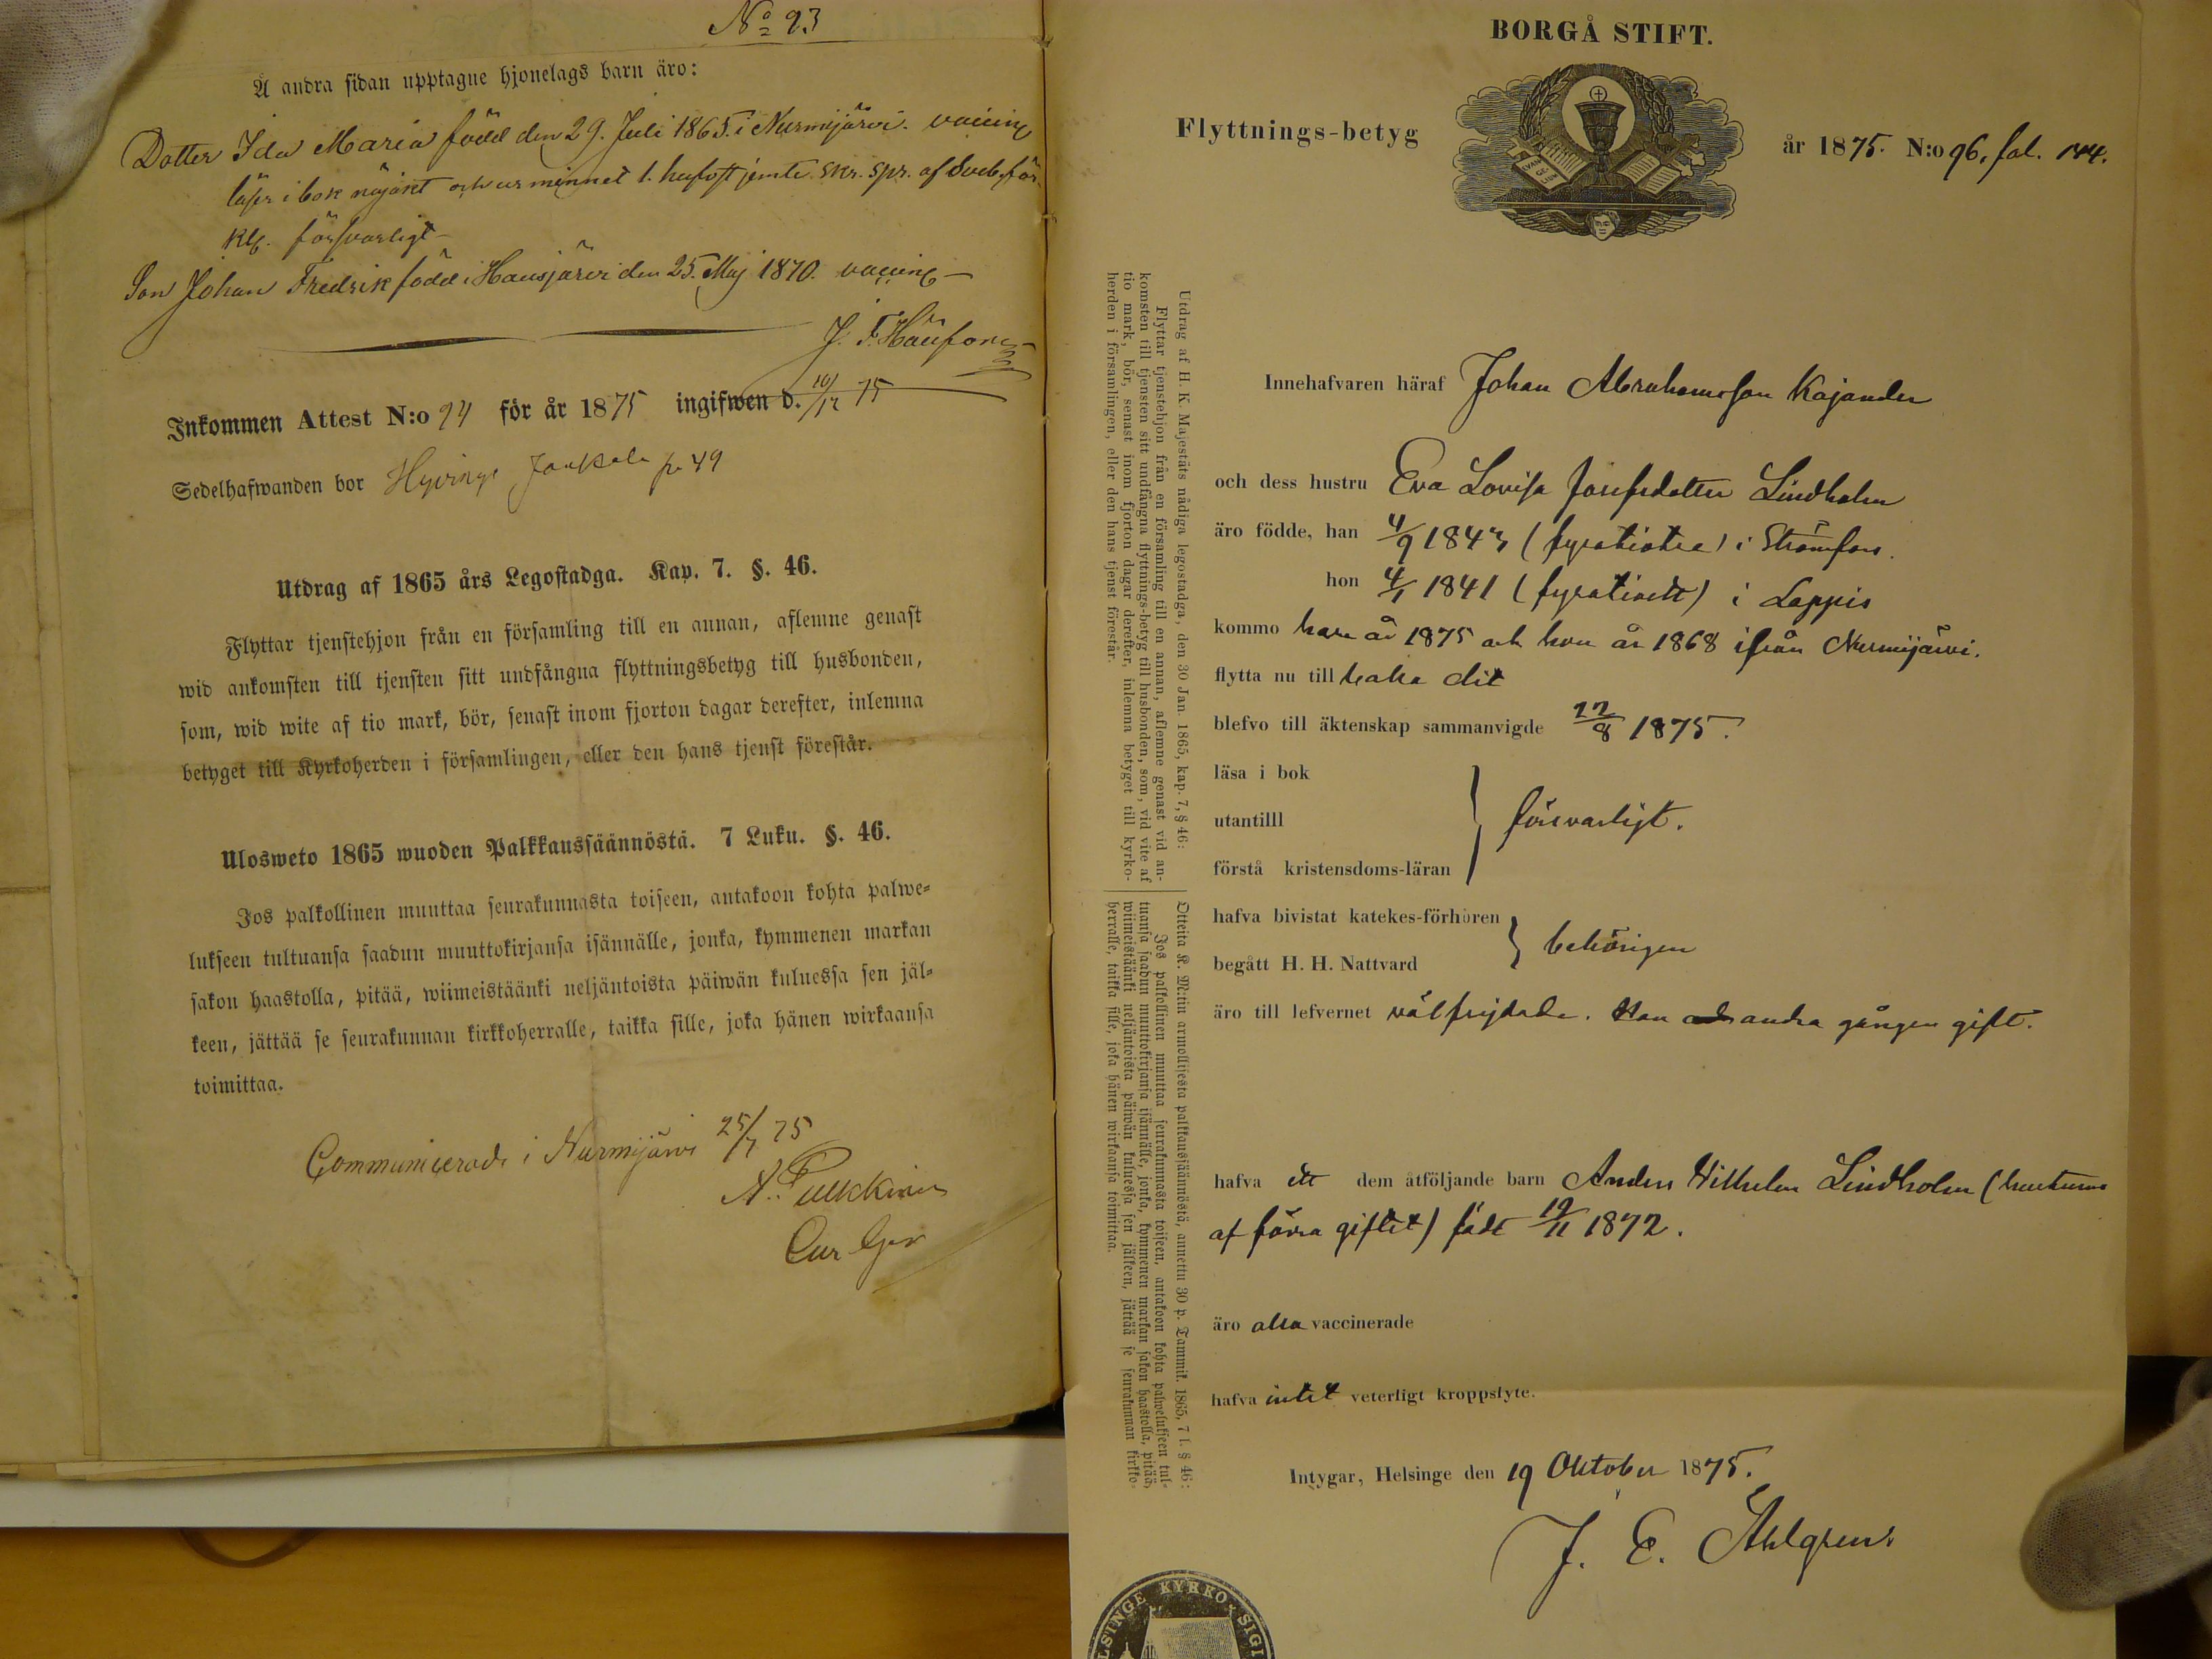 No 93
Å andra sidan upptagne hjonelags barn äro:
Dotter Ida Maria född den 29. Juli 1865. i Nurmijärvi. vaccin
läser i bok nöjakt och ur minnet 1. hufvst jemte skr. spr. af Sveb. för.
klg. försvarligt
Son Johan Fredrik född i Hausjärvi den 25. Maj 1870. vaccin
J. F.
Inkommen Attest N:o 94 för år 1875 ingifwen d. 10/12 75
Sedelhafwanden bor Hyvinge p. 49
Utdrag af 1865 års Legostadga. Kap. 7. §. 46.
Flyttar tjenstehjon från en församling till en annan, aflemne genast
wid ankomsten till tjensten sitt undfångna flyttningsbetyg till husbonden,
som, wid wite af tio mark, bör, senast inom fjorton dagar derefter, inlemna
betyget till Kyrkoherden i församlingen, eller den hans tjenst förestår.
Ulosweto 1865 wuoden Palkkaussäännöstä. 7 Luku. §. 46.
Jos palkollinen muuttaa seurakunnasta toiseen, antakoon kohta palwe-
lukseen tultuansa saadun muuttokirjansa isännälle, jonka, kymmenen markan
sakon haastolla, pitää, wiimeistäänki neljäntoista päiwän kuluessa sen jäl-
keen, jättää se seurakunnan kirkkoherralle, taikka sille, joka hänen wirkaansa
toimittaa.
Communicerade i Nurmijärvi 25/7 75
A. Pulkkinen
BORGÅ STIFT.
Flyttnings-betyg
EVAN GE- LIUM
år 1875. N:o 96, fol. 144.
Utdrag af H. K. Majestäts nådiga legostadga, den 30 Jan. 1865, kap. 7, § 46:
Flyttar tjenstehjon från en församling till en annan, aflemne genast vid an-
komsten till tjensten sitt undfångna flyttnings-betyg till husbonden, som, vid vite af
tio mark, bör, senast inom fjorton dagar derefter, inlemna betyget till kyrko-
herden i församlingen, eller den hans tjenst förestår.
Otteita K. M:tin armollisesta palkkaussäännöstä, annettu 30 p. Tammik. 1865, 7 l. § 46:
Jos palkollinen muuttaa seurakunnasta toiseen, antakoon kohta palwelukseen tul-
tuansa saadun muuttokirjansa isännälle, jonka, kymmenen markan sakon haastolla, pitää,
wiimeistäänki neljäntoista päiwän kuluessa sen jälkeen, jättää se seurakunnan kirkko-
herralle, taikka sille, joka hänen wirkaansa toimittaa.
Innehafvaren häraf Johan Abrahamsson Kajander
och dess hustru Eva Lovisa Josefsdotter Lindholm
äro födde, han 4/9 1843 (fyratiotre) i Strömfors.
hon 4/1 1841 (fyratioett) i Lappis
kommo han år 1875 och hon år 1868 ifrån Nurmijärvi.
flytta nu till baka dit
blefvo till äktenskap sammanvigde 22/8 1875.
läsa i bok
utantilll
förstå kristensdoms-läran
försvarligt.
hafva bivistat katekes-förhören
begått H. H. Nattvard
behörigen
äro till lefvernet välfrejdade. Han andra gången gift.
hafva ett dem åtföljande barn Anders Wilhelm Lindholm (hustruns
af förra giftet) född 19/11 1872.
äro alla vaccinerade
hafva intet veterligt kroppslyte.
Intygar, Helsinge den 19 Oktober 1875.
J. E. Åhlgren
LSINGE KYRKO SIGI